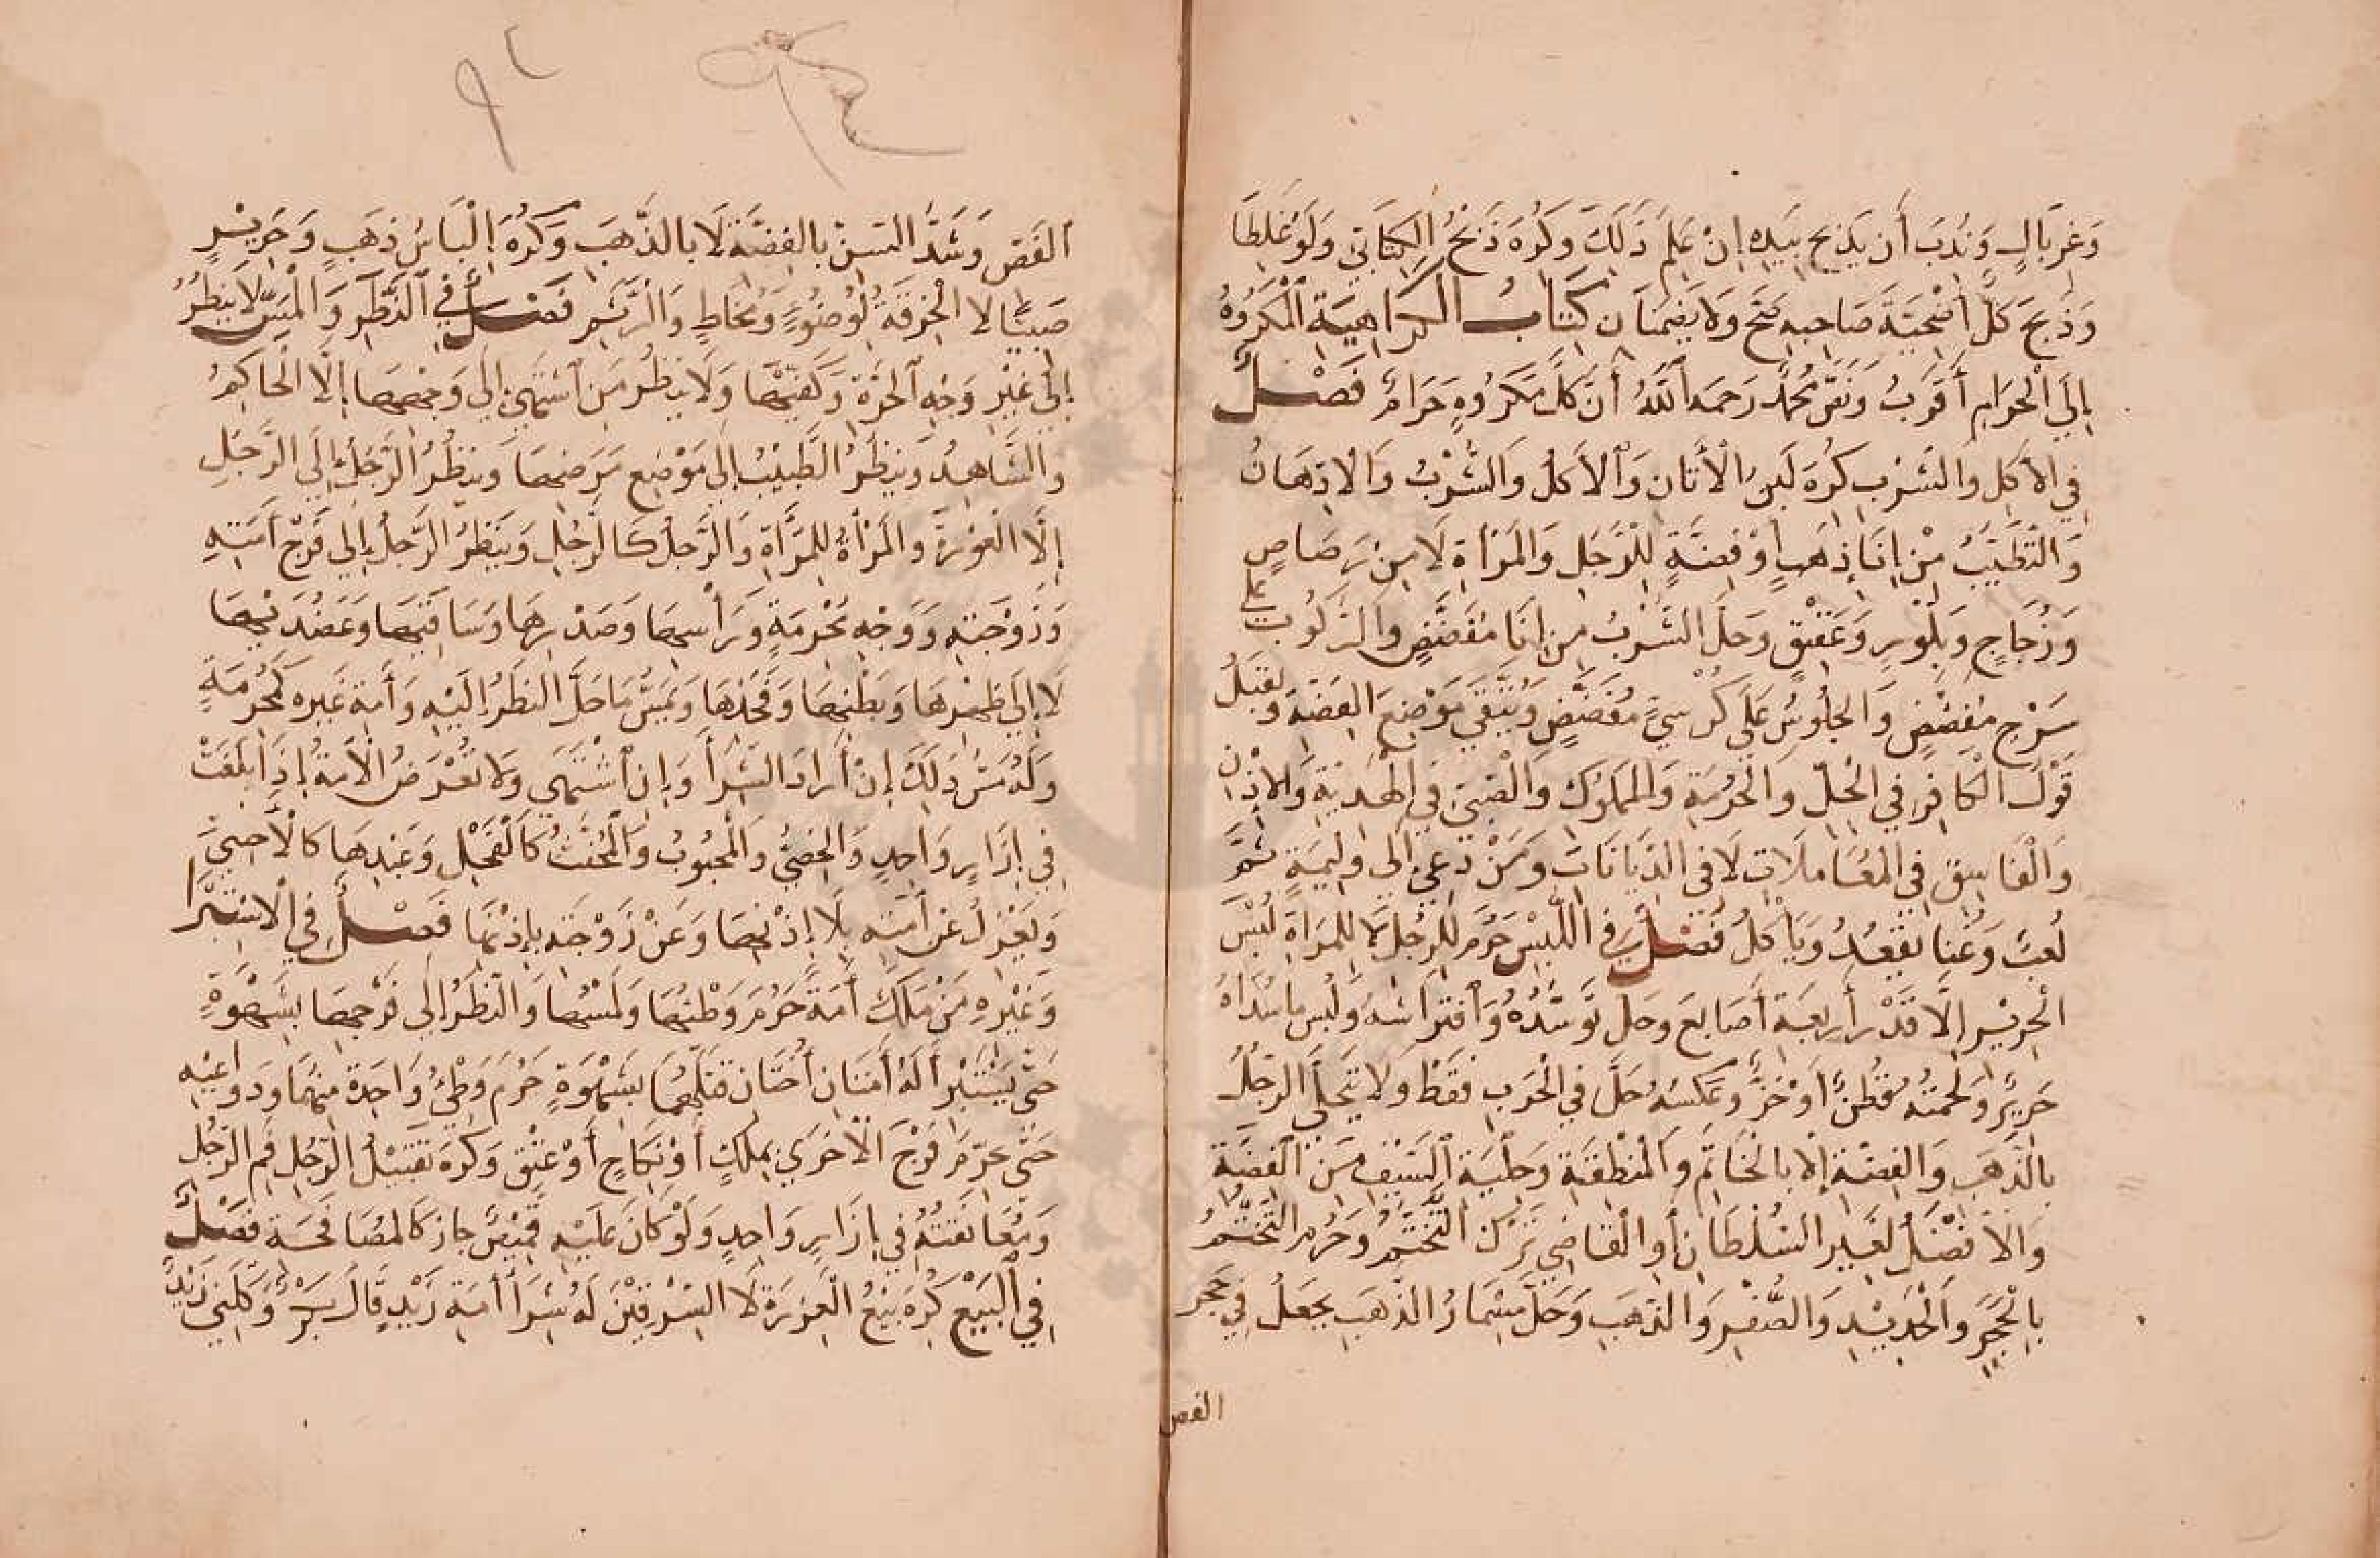 وَغِرْبَالٍ وَنُدِبَ أَنْ يَذْبَحَ بِيَدِهِ إِنْ عَلِمَ ذَلِكَ وَكُرِهَ ذَبْحُ الكِتَابِيِّ وَلَوْ غَلِطَا
وَذَبَحَ كُلٌّ أُضْحِيَةَ صَاحِبِهِ صَحَّ وَلَا يَضْمَنَانِ كِتَابُ الكَرَاهِيَةِ الْمَكْرُوهُ
إِلَى الْحَرَامِ أَقْرَبُ وَنَصَّ مُحَمَّدٌ رَحِمَهُ اللَّهُ أَنَّ كُلَّ مَكْرُوهٍ حَرَامٌ فَصْلٌ
فِي الأَكْلِ وَالشُّرْبِ كُرِهَ لَبَنُ الْأَتَانِ وَالْأَكْلُ وَالشُّرْبُ وَالْادِّهَانُ
وَالتَّطَيُّبُ مِنْ إِنَاءِ ذَهَبٍ أَوْ فِضَّةٍ لِلرَّجُلِ وَالمَرْأَةِ لَا مِنْ رَصَاصٍ
وَزُجَاجٍ وَبِلَّوْرٍ وَعَقِيْقٍ وَحَلَّ الشُّرْبُ مِنْ إِنَا مُفَضَّضٍ وَالرُّكُوبُ عَلَى
سَرْجٍ مُفَضَّضٍ وَالجُلُوسُ عَلَى كُرْسِيٍّ مُفَضَّضٍ وَيَتَّقِي مَوْضِعَ الفِضَّةِ وَيُقْبَلُ
قَوْلُ الْكَافِرِ فِي الحِلِّ وَالْحُرْمَةِ وَالمَمْلُوكِ وَالصَّبِيِّ فِي الْهَدِيَّةِ وَالاِذْنِ
وَالْفَاسِقِ فِي المُعَامَلَاتِ لَا فِي الدِّيَانَاتِ وَمَنْ دُعِيَ إِلَى وَلِيمَةٍ ثَمَّ
لُعَبٌ وَغِنَا يَقْعُدُ وَيَأْكُلُ فَصْلٌ فِي اللُّبْسِ حَرُمَ لِلرَّجُلِ لَا لِلمَرْأَةِ لُبْسُ
الْحَرِيْرِ إِلَّا قَدْرَ أَرْبَعَةِ أَصَابِعَ وَحَلَّ تَوَسُّدُهُ وَافْتِرَاشُهُ وَلُبْسُ مَا سَدَاهُ
حَرِيْرٌ وَلُحْمَتُهُ قُطْنٌ أَوْ خَزٌّ وَعَكْسُهُ حَلَّ فِي الْحَرْبِ فَقَطْ وَلَا يَتَحَلَّى الرَّجُلُ
بِالذَّهَبِ وَالفِضَّةِ إِلَّا بِالْخَاتَمِ وَالْمِنْطَقَةِ وَحِلْيَةِ السَّيْفِ مِنَ الْفِضَّةِ
وَالْأَفْضَلُ لِغَيْرِ السُّلْطَانِ أَوِ الْقَاضِي تَرْكُ التَّخَتُّمِ وَحَرُمَ التَّخَتُّمُ
بِالْحَجَرِ وَالْحَدِيْدِ وَالصُّفْرِ وَالذَّهَبِ وَحَلَّ مِسْمَارُ الذَّهَبِ يُجْعَلُ فِي حَجَرِ
الفص
الفَصِّ وَشَدُّ السِّنِّ بِالفِضَّةِ لَا بِالذَّهَبِ وَكُرِهَ إِلْبَاسُ ذَهَبٍ وَحَرِيْرٍ
صَبِيًّا لا الْخِرْقَةُ لِوُضُوءٍ وَمُخَاطٍ وَالرَّتَمِ فَصْلٌ فِي النَّظَرِ وَالْمَسِّ لَا يَنْظُرُ
إِلَى غَيْرِ وَجْهِ الْحُرَّةِ وَكَفَّيْهَا وَلَا يَنْظُرُ مَنِ اشْتَهَى إِلَى وَجْهِهَا إِلَّا الْحَاكِمُ
وَالشَّاهِدُ وَيَنْظُرُ الطَّبِيْبُ إِلَى مَوْضِعِ مَرَضِهَا وَيَنْظُرُ الرَّجُلُ إِلَى الرَّجُلِ
إِلَّا الْعَوْرَةَ وَالمَرْأَةُ لِلمَرْأَةِ وَالرَّجُلُ كَالرَّجُلِ وَيَنْظُرُ الرَّجُلُ إِلَى فَرْجِ أَمَتِهِ
وَزَوْجَتِهِ وَوَجْهِ مَحْرَمِهِ وَرَأْسِهَا وَصَدْرِهَا وَسَاقَيْهَا وَعَضُدَيْهَا
لَا إِلَى ظَهْرِهَا وَبَطْنِهَا وَفَخِذِهَا وَيَمَسُّ مَا حَلَّ النَّظَرُ إِلَيْهِ وَأَمَةُ غَيْرِهِ كَمَحْرَمِهِ
وَلَهُ مَسُّ ذَلِكَ إِنْ أَرَادَ الشِّرَاءَ وَإِنِ اشْتَهَى وَلَا تُعْرَضُ الْأَمَةُ إِذَا بَلَغَتْ
فِي إِزَارٍ وَاحِدٍ وَالخَصِيُّ وَالْمَجْبُوبُ وَالْمُخَنَّثُ كَالفَحْلِ وَعَبْدُهَا كَالْأَجْنَبِيِّ
وَيَعْزِلُ عَنْ أَمَتِهِ بِلَا إِذْنِهَا وَعَنْ زَوْجَتِهِ بِإِذْنِهَا فَصْلٌ فِي الْاسْتِبْرَا
وَغَيْرِهِ مَنْ مَلَكَ أَمَةً حَرُمَ وَطْئُهَا وَلَمْسُهَا وَالنَّظَرُ إِلَى فَرْجِهَا بِشَهْوَةٍ
حَتَّى يَسْتَبْرِأَ لَهُ أَمَتَانِ أُخْتَانِ قَبَّلَهُمَا بِشَهْوَةٍ حَرُمَ وَطْئُ وَاحِدَةٍ مِنْهُمَا وَدَوَاعِيْهِ
حَتَّى يُحَرِّمَ فَرْجَ الْأُخْرَى بِمِلْكٍ أَوْ نِكَاحٍ أَوْ عِتْقٍ وَكُرِهَ تَقْبِيْلُ الرَّجُلِ فَمَ الرَّجُلِ
وَمُعَانَقَتُهُ فِي إِزَارٍ وَاحِدٍ وَلَوْ كَانَ عَلَيْهِ قَمِيْصٌ جَازَ كَالمُصَافَحَةِ فَصْلٌ
فِي الْبَيْعِ كُرِهَ بَيْعُ الْعَذِرَةِ لَا السِّرْقِيْنَ لَهُ شِرَاءُ أَمَةِ زَيْدٍ قَالَ بَكْرٌ وَكَّلَنِي زَيْدٌ